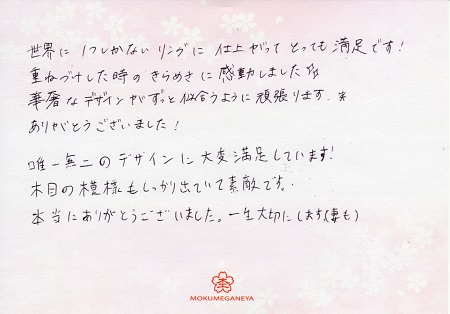 世界に1つしかないリングに仕上がってとっても満足です!
重ねづけした時のきらめきに感動しました
華奢なデザインがずっと似合うように頑張ります。*
ありがとうございました!
唯一無二のデザインに大変満足しています!
木目の模様もしっかり出ていて素敵です。
本当にありがとうございました。一生大切にします(妻も)
MOKUMEGANEYA